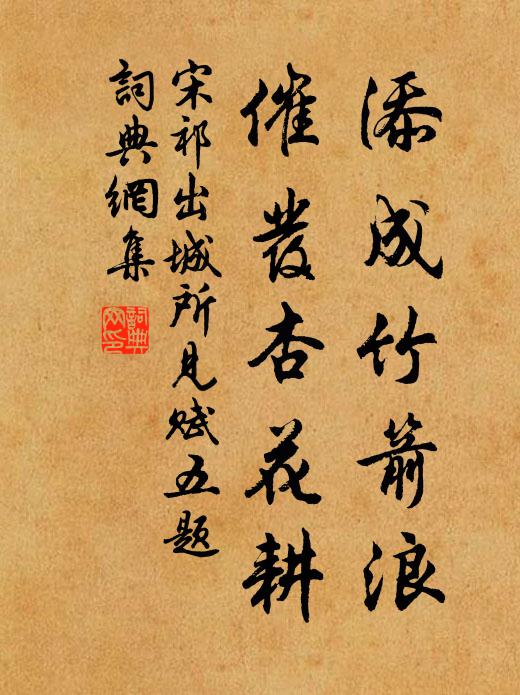 添成竹箭浪
催發杏花耕
宋祁出城所見賦五題
詞典網集
詞典網印